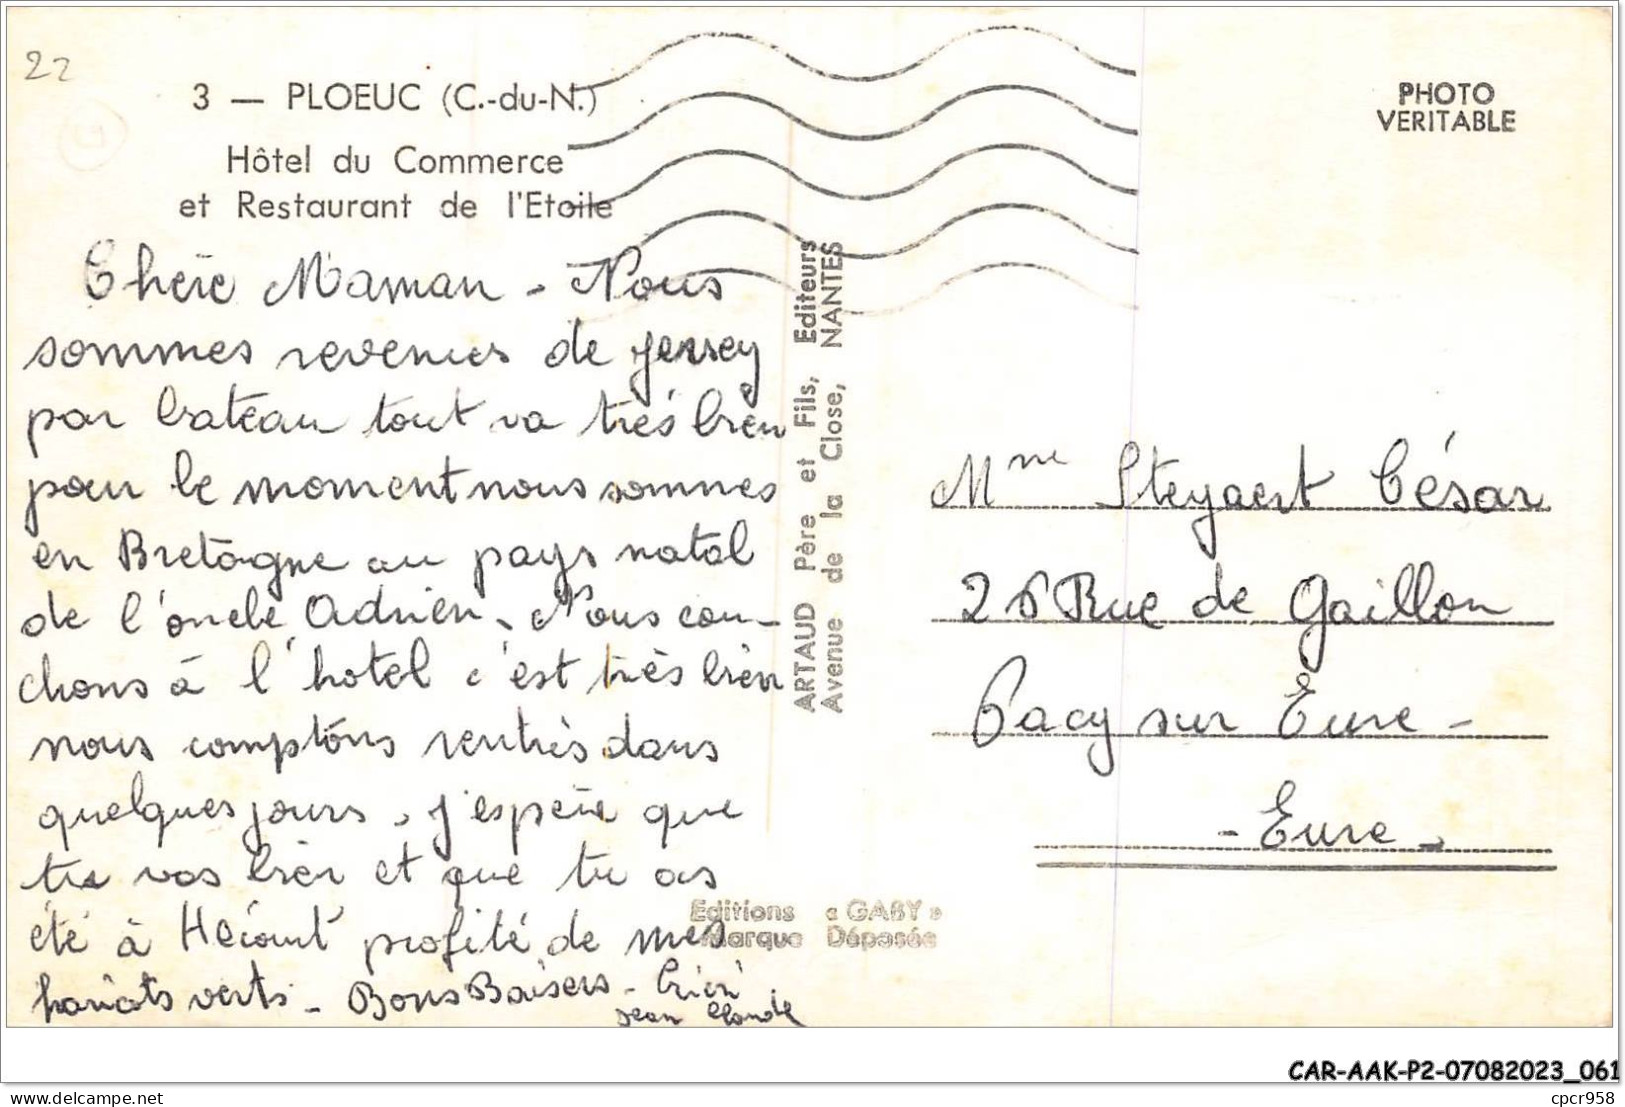 22
3 — PLOEUC (C.-du-N.)
Hôtel du Commerce
et Restaurant de l'Etoile
Chère Maman - Nous
sommes revenues de Jersey
par bateau tout va très bien
pour le moment nous sommes
en Bretagne au pays natal
de l'oncle Adrien. Nous cou-
chons à l'hotel c'est très bien
nous comptons rentrés dans
quelques jours, j'espère que
tu vas bien et que tu as
été à Hécourt profité de mes
haricots verts - Bons Baisers -
Jean Claude
ARTAUD Père et Fils, Editeurs
Avenue de la Close, NANTES
Editions « GABY »
Marque Déposée
PHOTO
VERITABLE
Mme Steyaert César
26 Rue de Gaillon
Pacy sur Eure -
- Eure -
CAR-AAK-P2-07082023_061
delcampe.net
cpcr958